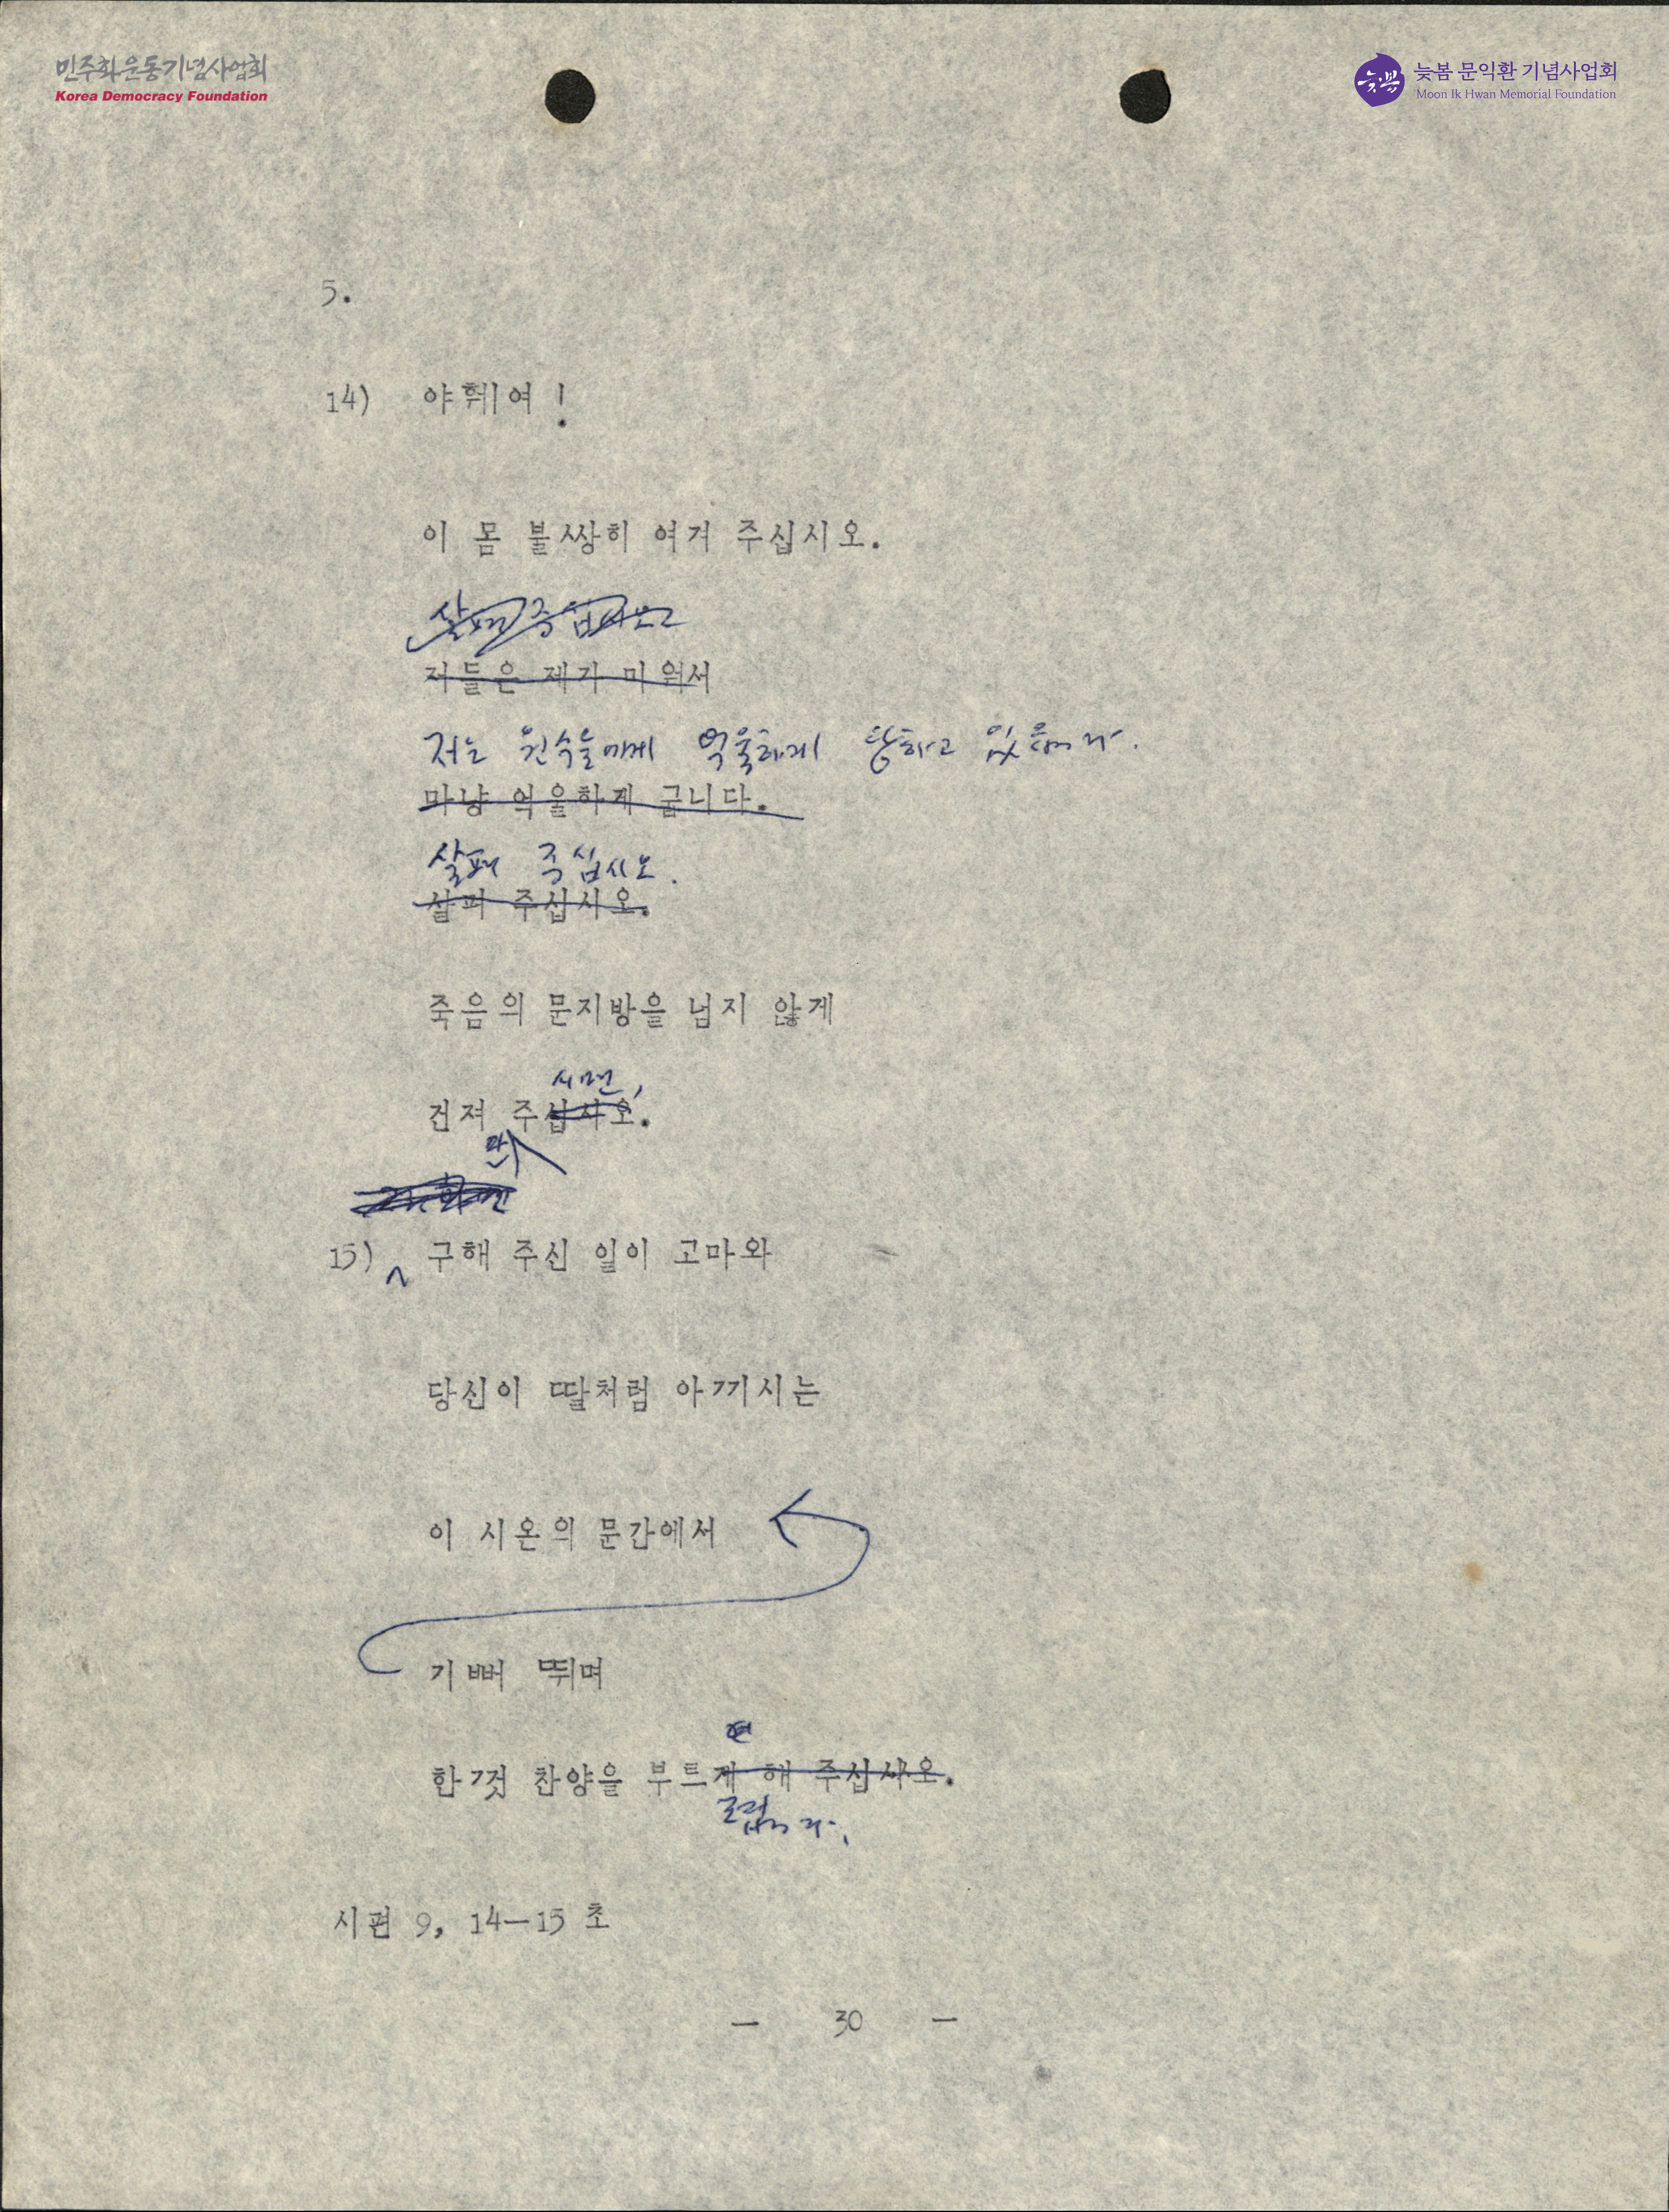 민주화운동기념사업회
Korea Democracy Foundation
늦봄
늦봄 문익환 기념사업회
Moon Ik Hwan Memorial Foundation
5.
14) 야훼여!
이 몸 불쌍히 여겨 주십시오.
살펴 주십시오
저들은 제가 미워서
저는 원수들에게 억울하게 당하고 있습니다.
마냥 억울하게 굽니다.
살펴 주십시오.
살펴 주십시오.
죽음의 문지방을 넘지 않게
시면,
건져 주십시오.
만
15) 구해 주신 일이 고마와
당신이 딸처럼 아끼시는
이 시온의 문간에서
기뻐 뛰며
한껏 찬양을 부르게 해 주십시오.
렵니다.
시편 9, 14—15 초
— 30 —